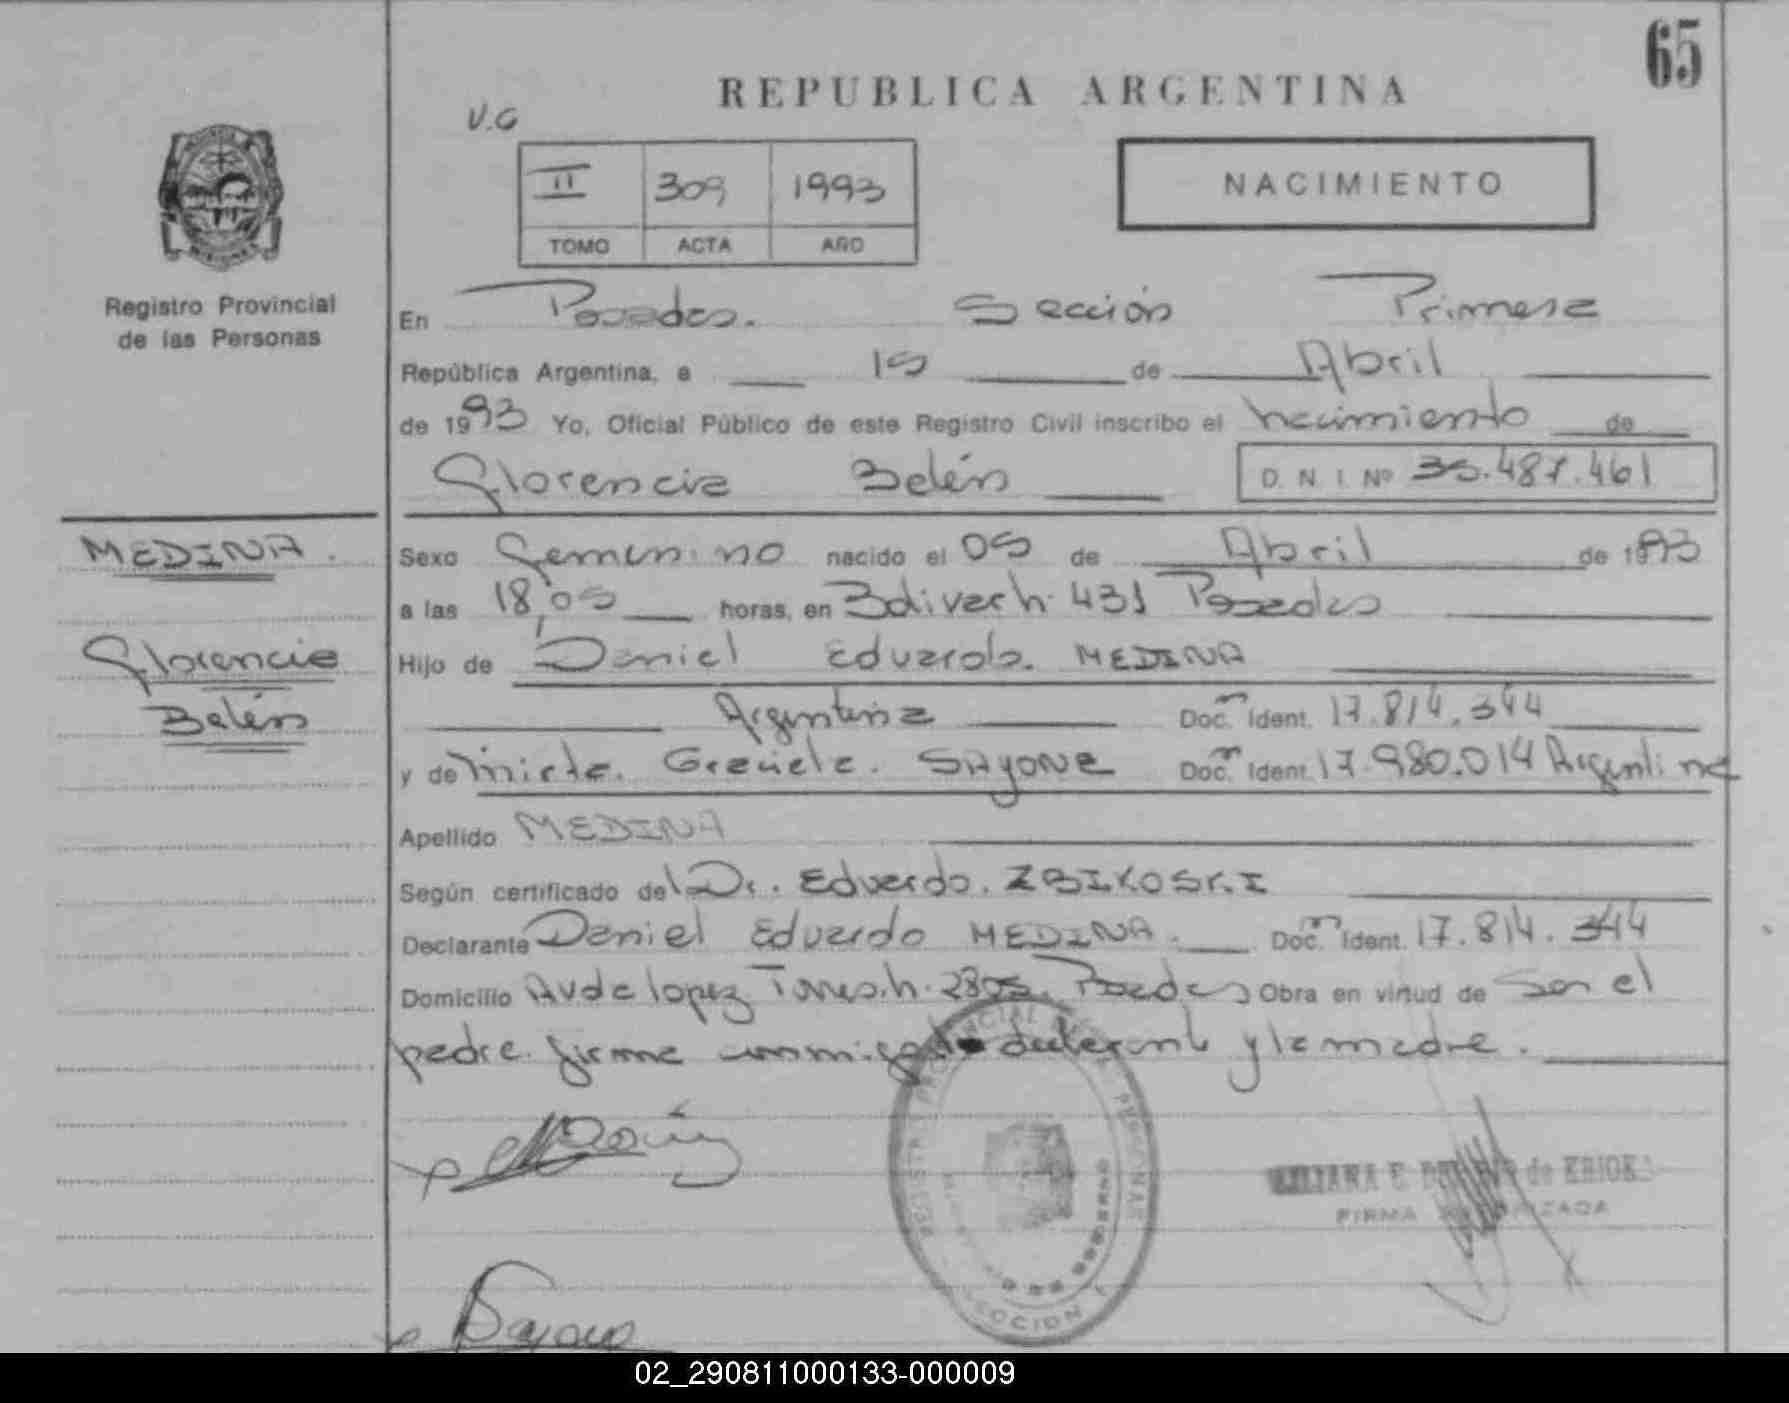 65
REPUBLICA ARGENTINA
V.G
II 309 1993
TOMO ACTA AÑO
NACIMIENTO
Registro Provincial
de las Personas
En Posadas. Sección Primera
República Argentina, a 15 de Abril
de 1993 Yo, Oficial Público de este Registro Civil inscribo el nacimiento de
Florencia Belén D. N. I. Nº 35.487.461
MEDINA.
Florencia
Belén
Sexo Femenino nacido el 05 de Abril de 1993
a las 18,05 horas, en Bolivar h. 431 Posadas
Hijo de Daniel Eduardo. MEDINA
Argentina Doc. Ident. 17.814.344
y de Mirta. Graciela. SAYONE Doc. Ident. 17.980.014 Argentina
Apellido MEDINA
Según certificado del Dr. Eduardo. ZBIKOSKI
Declarante Daniel Eduardo MEDINA. Doc. Ident. 17.814.344
Domicilio Avda lopez Torres. h. 2805. Posadas Obra en virtud de Ser el
padre. firma conmigo declarante y la madre.
LILIANA E de
FIRMA AUTORIZADA
SECCION 1
02_290811000133-000009